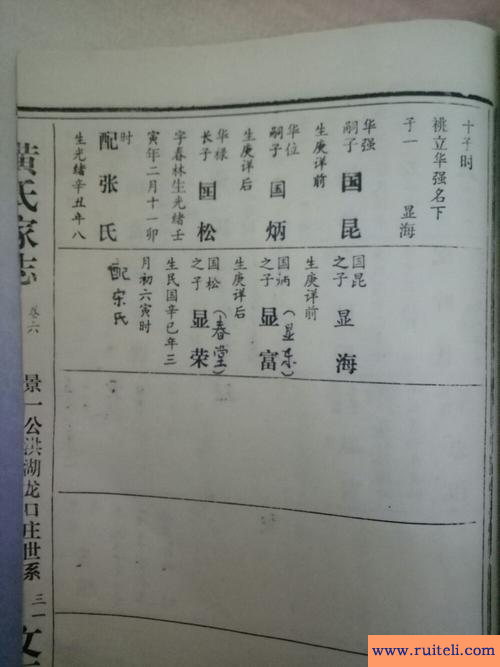 十子时
桃立华强名下
子一 显海
华强
嗣子 国昆
生庚详前
华位
嗣子 国炳
生庚详后
华禄
长子 国松
字春林生光绪壬
寅年二月十一卯
时
配张氏
生光绪辛丑年八
国昆
之子 显海
生庚详前
国炳
之子 显富(显东)
生庚详后
国松
之子 显荣(春堂)
生民国辛巳年三
月初六寅时
配宋氏
黄氏家志
卷六
景一公洪湖龙口庄世系
三一
www.ruiteli.com